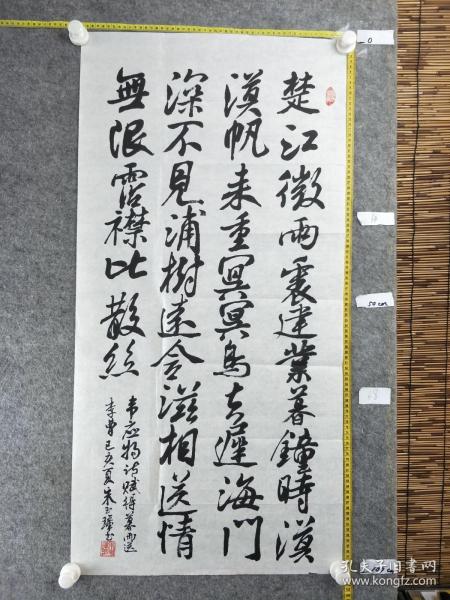 楚江微雨裏建業暮鐘時漠
漠帆来重冥冥鳥去遲海門
深不見浦樹遠含滋相送情
無限霑襟比散絲
韦应物诗赋得暮雨送
李曹己亥夏朱书
0
50cm
孔夫子旧书网
kongfz.com